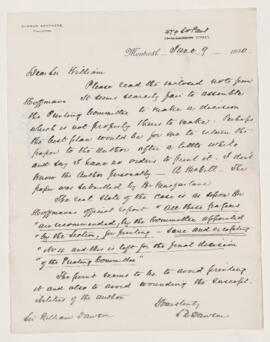 DAWSON BROTHERS,
Montreal, June 9
Dear Sir William
Please read the enclosed note from
Hoffmann. It seems scarcely fair to assemble
the Printing Committee to make a decision
which is not properly theirs to make. Perhaps
the best plan would be for me to return the
paper to the author after a little while
and say I have no orders to print it. I don't
know the author personally
paper was submitted by
The real state of the case is as
Hoffmann's official report "All these papers
are recommended, by the Committee appointed
by the Section, for printing — save and excepting
No 4 and this is left for the final decision
of the Printing Committee"
The point seems to be to avoid printing
it and also to avoid wounding the suscept-
ibilities of the author.
Yours truly
Sir William Dawson
S E Dawson